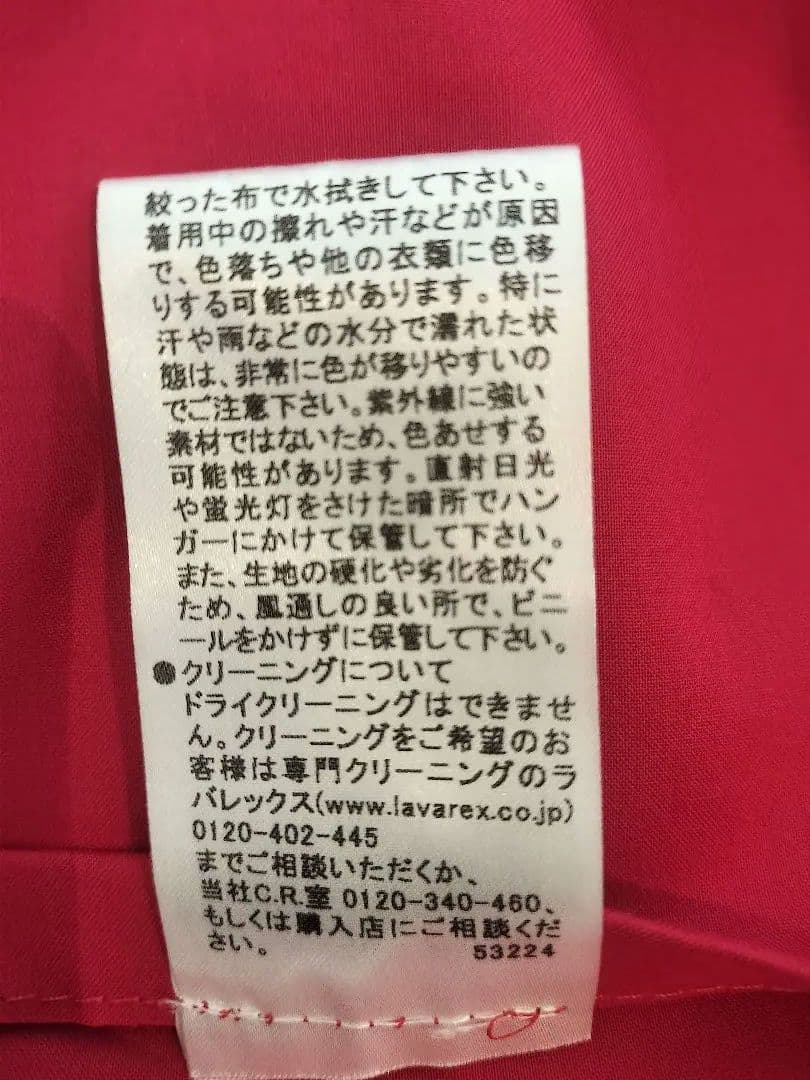 絞った布で水拭きして下さい。
着用中の擦れや汗などが原因
で、色落ちや他の衣類に色移
りする可能性があります。特に
汗や雨などの水分で濡れた状
態は、非常に色が移りやすいの
でご注意下さい。紫外線に強い
素材ではないため、色あせする
可能性があります。直射日光
や蛍光灯をさけた暗所でハン
ガーにかけて保管して下さい。
また、生地の硬化や劣化を防ぐ
ため、風通しの良い所で、ビニ
ールをかけずに保管して下さい。
●クリーニングについて
ドライクリーニングはできませ
ん。クリーニングをご希望のお
客様は専門クリーニングのラ
バレックス(www.lavarex.co.jp)
0120-402-445
までご相談いただくか、
当社C.R.室 0120-340-460、
もしくは購入店にご相談くだ
さい。 53224